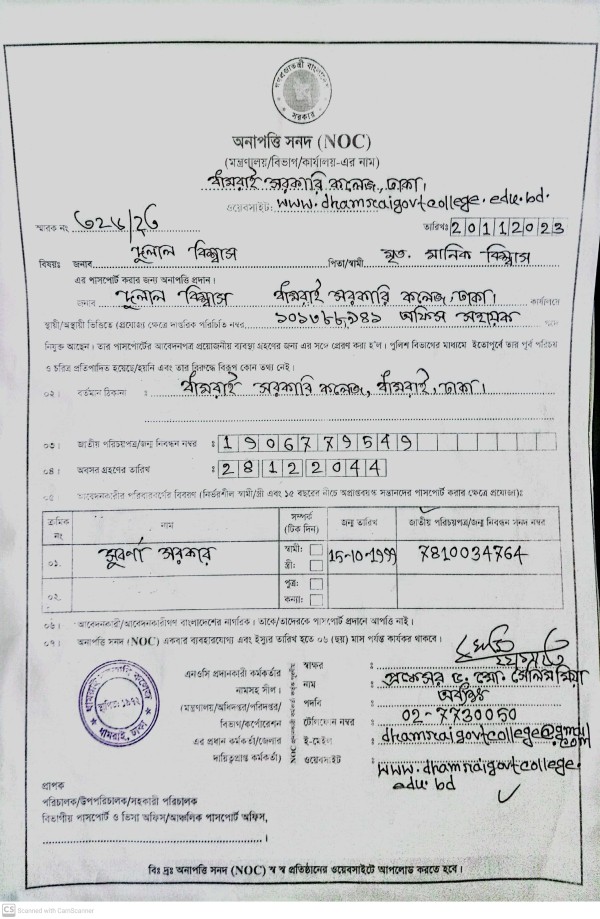 গণপ্রজাতন্ত্রী বাংলাদেশ সরকার
অনাপত্তি সনদ (NOC)
(মন্ত্রণালয়/বিভাগ/কার্যালয়-এর নাম)
ধামরাই সরকারি কলেজ, ঢাকা।
ওয়েবসাইট: www.dhamraigovtcollege.edu.bd.
স্মারক নং তারিখঃ 20112023
বিষয়ঃ জনাব দুলাল বিশ্বাস পিতা/স্বামী মৃত. মানিক বিশ্বাস
এর পাসপোর্ট করার জন্য অনাপত্তি প্রদান।
জনাব দুলাল বিশ্বাস ধামরাই সরকারি কলেজ, ঢাকা। কার্যালয়ে
স্থায়ী/অস্থায়ী ভিত্তিতে (প্রযোজ্য ক্ষেত্রে দাপ্তরিক পরিচিতি নম্বর অফিস সহায়ক পদে
নিযুক্ত আছেন। তার পাসপোর্টের আবেদনপত্র প্রয়োজনীয় ব্যবস্থা গ্রহণের জন্য এর সঙ্গে প্রেরণ করা হ'ল। পুলিশ বিভাগের মাধ্যমে ইতোপূর্বে তার পূর্ব পরিচয়
ও চরিত্র প্রতিপাদিত হয়েছে/হয়নি এবং তার বিরুদ্ধে বিরূপ কোন তথ্য নেই।
০২। বর্তমান ঠিকানা : ধামরাই সরকারি কলেজ, ধামরাই, ঢাকা।
০৩। জাতীয় পরিচয়পত্র/জন্ম নিবন্ধন নম্বর : 1906779549
০৪। অবসর গ্রহণের তারিখ : 28122044
০৫ আবেদনকারীর পরিবারবর্গের বিবরণ (নির্ভরশীল স্বামী/স্ত্রী এবং ১৫ বছরের নীচে অপ্রাপ্তবয়স্ক সন্তানদের পাসপোর্ট করার ক্ষেত্রে প্রযোজ্য)ঃ
ক্রমিক নং নাম সম্পর্ক (টিক দিন) জন্ম তারিখ জাতীয় পরিচয়পত্র/জন্ম নিবন্ধন সনদ নম্বর
০১. সুবর্ণা সরকার স্বামী: স্ত্রী: 15-10-1999 7810034764
০২. পুত্র: কন্যা:
০৬। আবেদনকারী/আবেদনকারীগণ বাংলাদেশের নাগরিক। তাকে/তাদেরকে পাসপোর্ট প্রদানে আপত্তি নাই।
০৭। অনাপত্তি সনদ (NOC) একবার ব্যবহারযোগ্য এবং ইস্যুর তারিখ হতে ০৬ (ছয়) মাস পর্যন্ত কার্যকর থাকবে।
ধামরাই সরকারি কলেজ
স্থাপিত: ১৯৭২
ধামরাই, ঢাকা
এনওসি প্রদানকারী কর্মকর্তার
নামসহ সীল।
(মন্ত্রণালয়/অধিদপ্তর/পরিদপ্তর/
বিভাগ/কর্পোরেশন
এর প্রধান কর্মকর্তা/জেলার
দায়িত্বপ্রাপ্ত কর্মকর্তা)
স্বাক্ষর :
নাম : প্রফেসর ড. মো. সেলিম মিয়া
পদবি : অধ্যক্ষ
টেলিফোন নম্বর : 02-7730050
ই-মেইল : dhamraigovtcollege@gmail.com
ওয়েবসাইট : www.dhamraigovtcollege.
edu.bd
প্রাপক
পরিচালক/উপপরিচালক/সহকারী পরিচালক
বিভাগীয় পাসপোর্ট ও ভিসা অফিস/আঞ্চলিক পাসপোর্ট অফিস,
।
বিঃ দ্রঃ অনাপত্তি সনদ (NOC) স্ব স্ব প্রতিষ্ঠানের ওয়েবসাইটে আপলোড করতে হবে।
CS Scanned with CamScanner